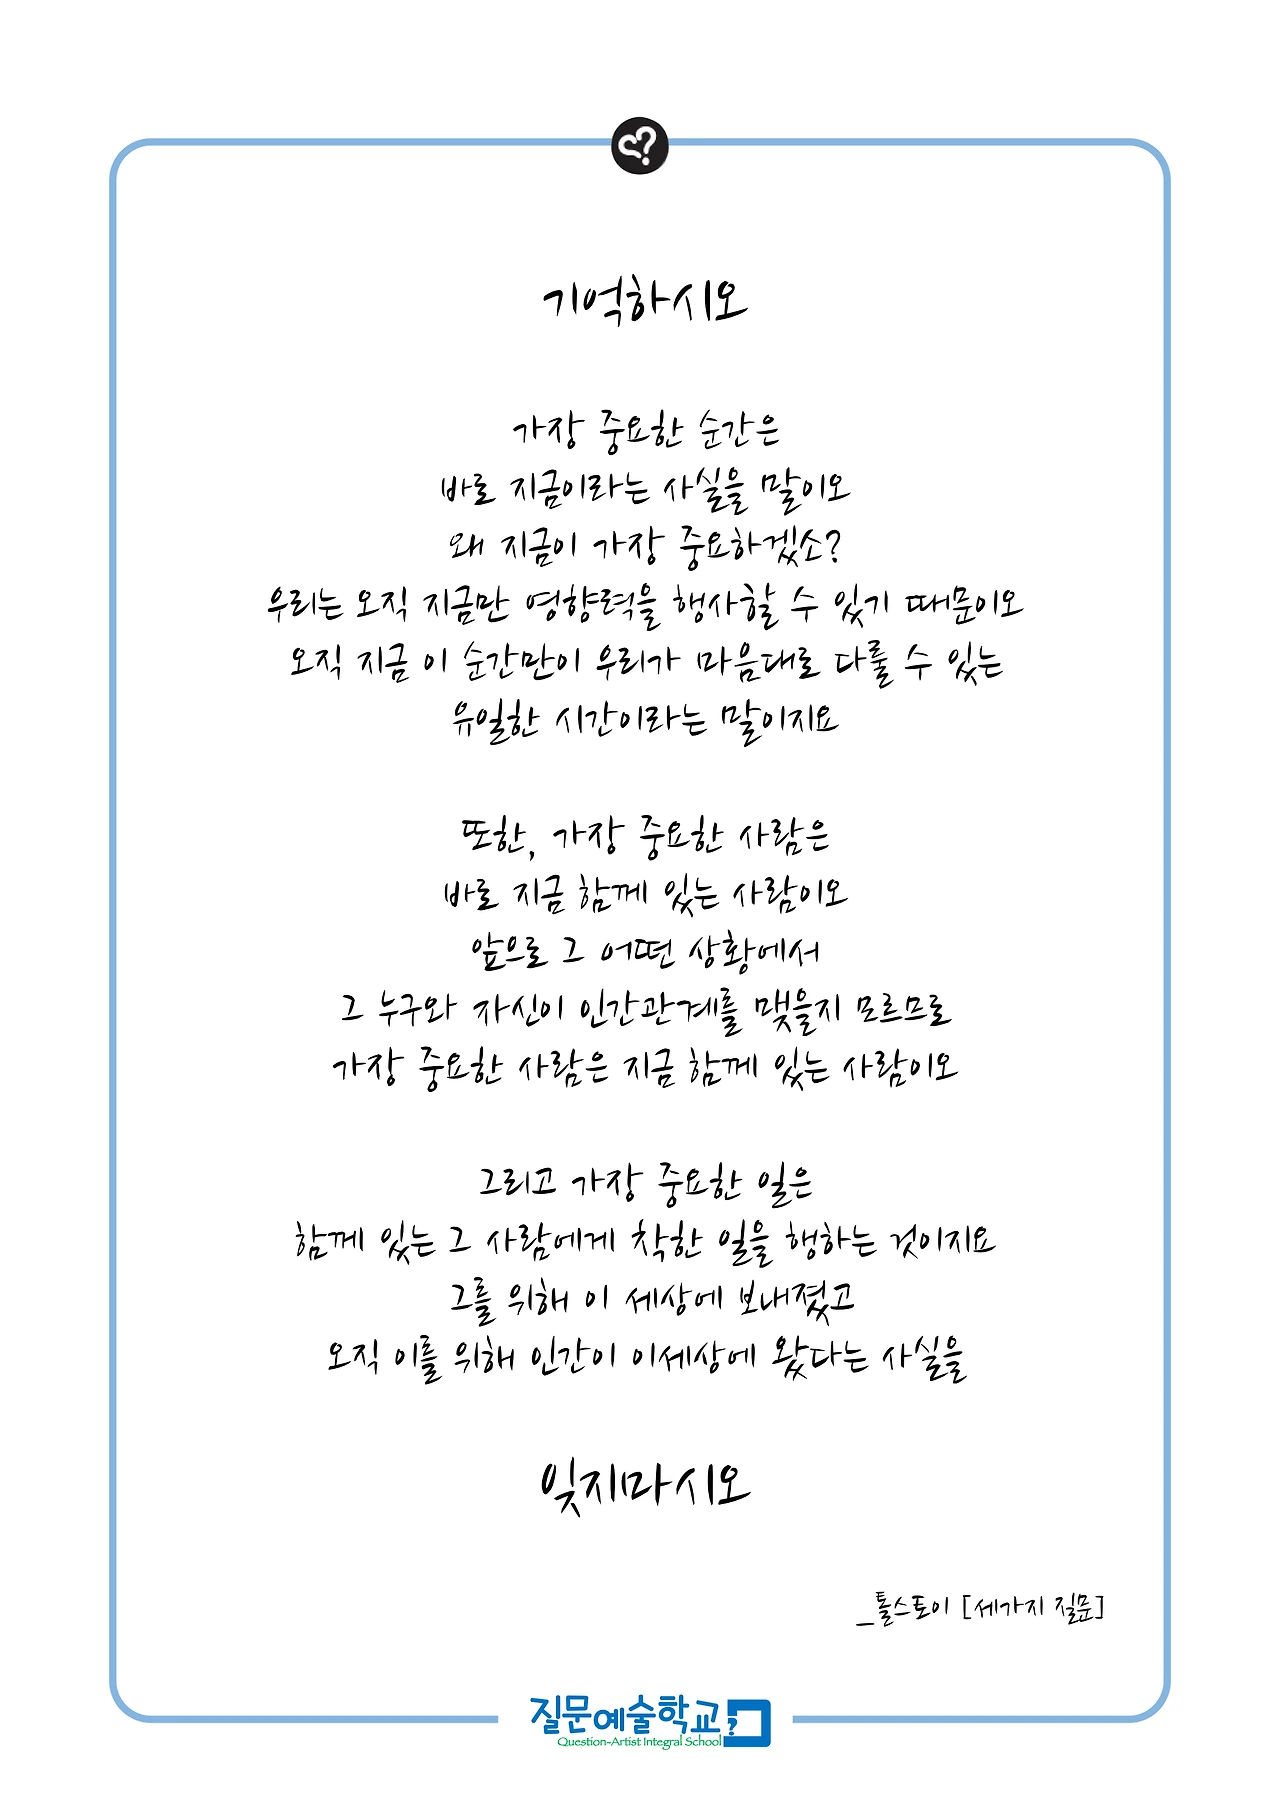 기억하시오
가장 중요한 순간은
바로 지금이라는 사실을 말이오
왜 지금이 가장 중요하겠소?
우리는 오직 지금만 영향력을 행사할 수 있기 때문이오
오직 지금 이 순간만이 우리가 마음대로 다룰 수 있는
유일한 시간이라는 말이지요
또한, 가장 중요한 사람은
바로 지금 함께 있는 사람이오
앞으로 그 어떤 상황에서
그 누구와 자신이 인간관계를 맺을지 모르므로
가장 중요한 사람은 지금 함께 있는 사람이오
그리고 가장 중요한 일은
함께 있는 그 사람에게 착한 일을 행하는 것이지요
그를 위해 이 세상에 보내졌고
오직 이를 위해 인간이 이세상에 왔다는 사실을
잊지마시오
_톨스토이 [세가지 질문]
질문예술학교?
Question-Artist Integral School